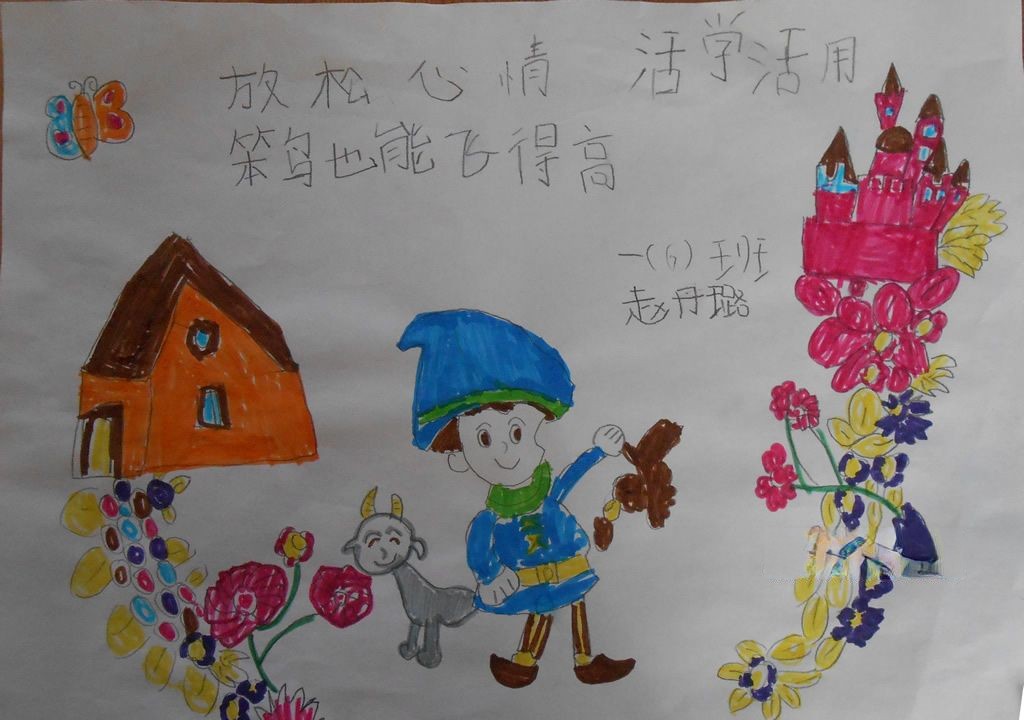 放松心情 活学活用
笨鸟也能飞得高
一(6)班
赵丹璐